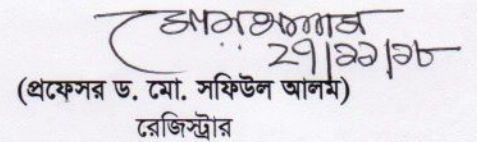 ২৭|১১|১৮
(প্রফেসর ড. মো. সফিউল আলম)
রেজিস্ট্রার